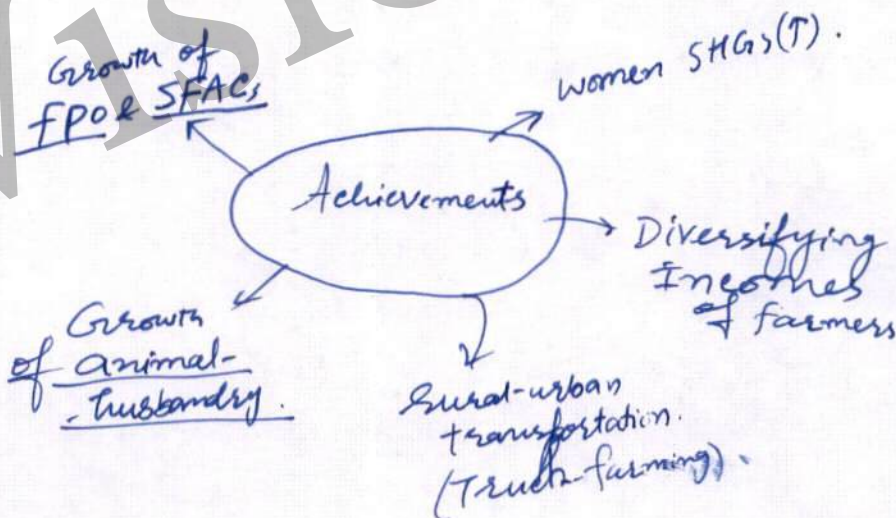 Vision
Growth of
FPO & SFACs
women SHGs(↑).
Achievements
Diversifying
Incomes
of farmers
Growth
of animal-
-husbandry.
Rural-urban
transportation.
(Truck-farming).